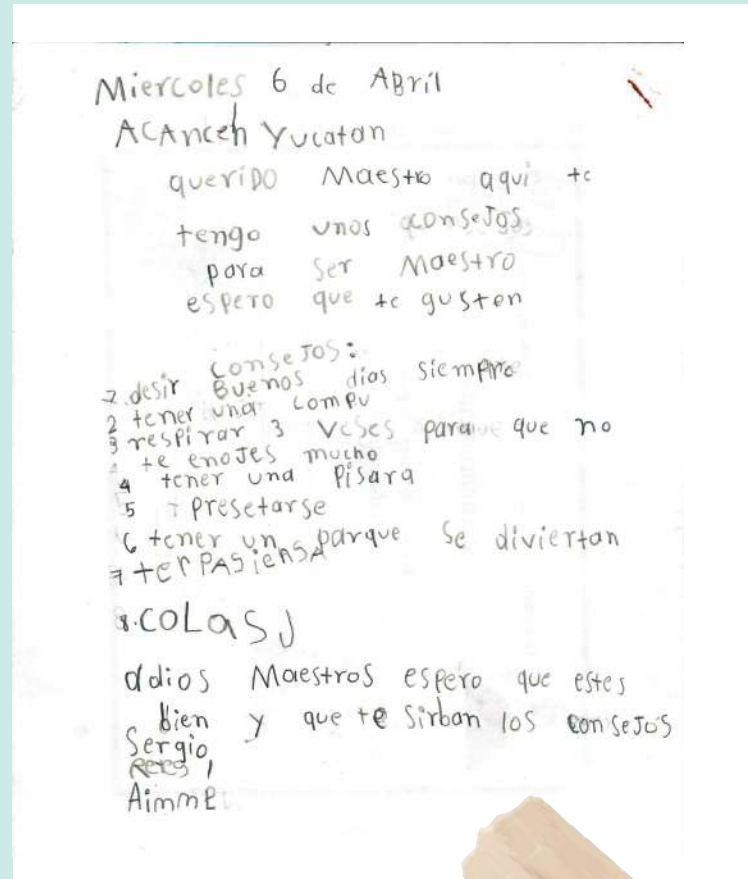 Miercoles 6 de ABril
ACAnceh Yucatan
queriDO Maestro aqui te
tengo unos consejos
para ser Maestro
espero que te gusten
consejos:
1 desir Buenos dias siempre
2 tener una compu
3 respirar 3 veses para que no
te enojes mucho
4 tener una Pisara
5 presetarse
6 tener un parque se diviertan
7 ter PASiensA
8. COLaS
adios Maestros espero que estes
bien y que te sirban los consejos
Sergio
Aimme